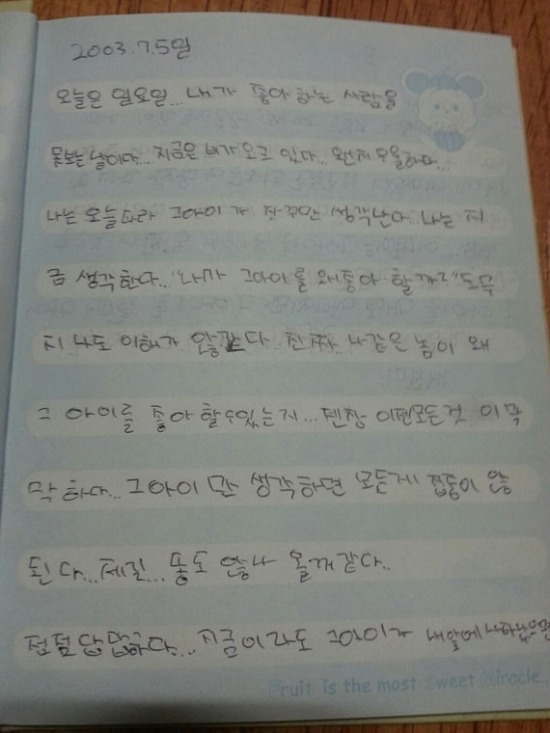 2003.7.5일
오늘은 일요일... 내가 좋아하는 사람을
못보는 날이다... 지금은 비가 오고 있다... 왠지 우울하다...
나는 오늘따라 그아이가 자꾸만 생각난다. 나는 지
금 생각한다... "내가 그아이를 왜 좋아 할까?" 도무
지 나도 이해가 않간다. 진짜... 나같은 놈이 왜
그 아이를 좋아 할수있는지... 젠장 이젠모든것 이 막
막 하다... 그아이 만 생각하면 모든게 집중이 않
된다... 제길... 똥도 않나 올꺼같다..
점점 답답하다... 지금이라도 그아이가 내앞에 나타났으면
Fruit is the most Sweet Miracle...